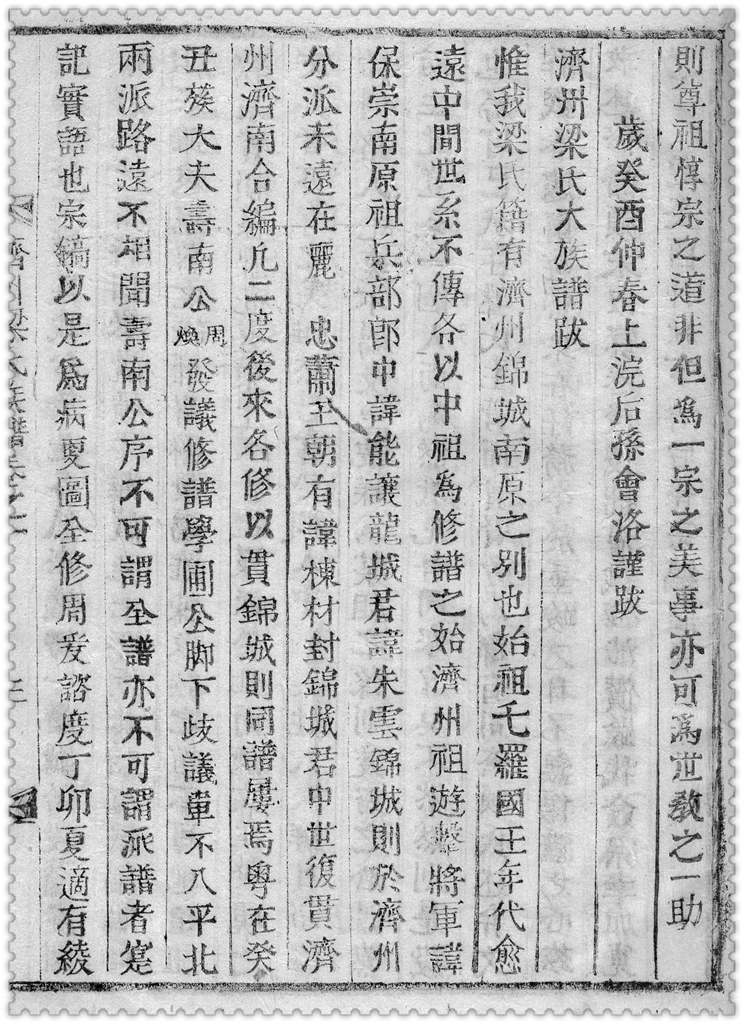 則尊祖惇宗之道非但爲一宗之美事亦可爲世敎之一助
歲癸酉仲春上浣后孫會洛謹跋
濟州梁氏大族譜跋
惟我梁氏籍有濟州錦城南原之別也始祖乇羅國王年代愈
遠中間世系不傳各以中祖爲修譜之始濟州祖遊擊將軍諱
保崇南原祖兵部郎中諱能讓龍城君諱朱雲錦城則於濟州
分派未遠在麗 忠肅王朝有諱棟材封錦城君中世復貫濟
州濟南合編凡二度後來各修以貫錦城則同譜屢焉粤在癸
丑蔟大夫壽南公周煥發議修譜學圃公脚下歧議單不入平北
兩派路遠不相聞壽南公序不可謂全譜亦不可謂派譜者寔
記實語也宗鎬以是爲病更圖全修周爰諮度丁卯夏適有綾
濟州梁氏族譜